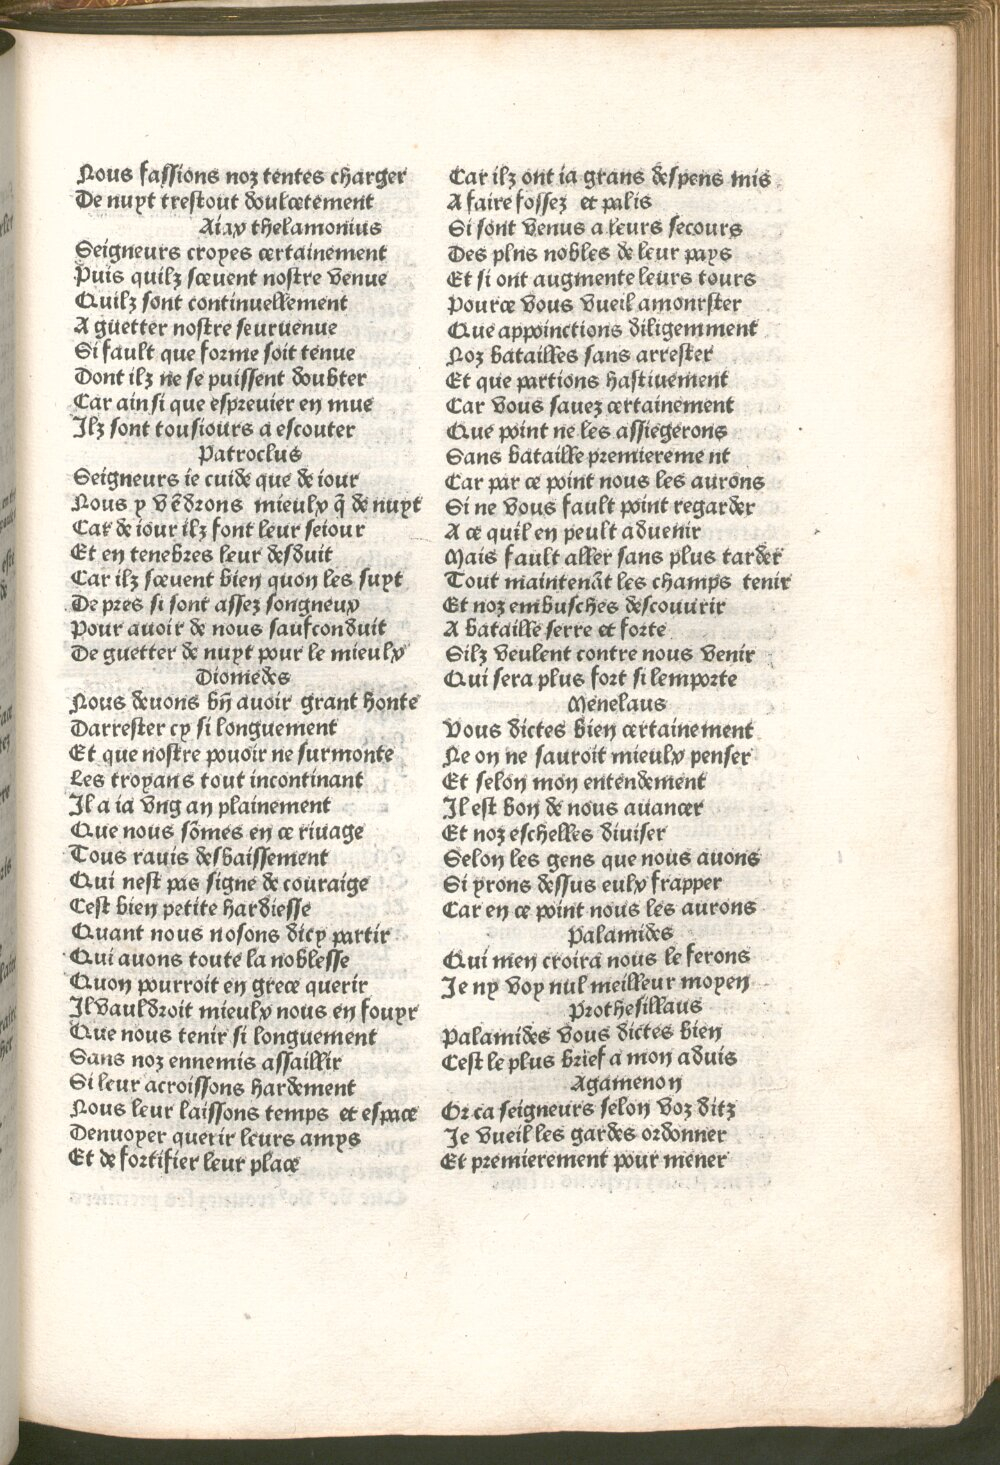 Nous fassions noz tentes charger
De nuyt trestout doulcetement
Aiax thelamonius
Seigneurs croyes certainement
Puis quilz scevent nostre venue
Quilz sont continuellement
A guetter nostre seuruenue
Si fault que forme soit tenue
Dont ilz ne se puissent doubter
Car ainsi que esprevier en mue
Ilz sont tousiours a escouter
Patroclus
Seigneurs ie cuide que de iour
Nous y vēdrons mieulx q̄ de nuyt
Car de iour ilz font leur seiour
Et en tenebres leur desduit
Car ilz scevent bien quon les suyt
De pres si sont assez songneux
Pour auoir de nous saufconduit
De guetter de nuyt pour le mieulx
Diomedes
Nous deuons bn̄ auoir grant honte
Darrester cy si longuement
Et que nostre pouoir ne surmonte
Les troyans tout incontinant
Il a ia vng an plainement
Que nous sōmes en ce riuage
Tous rauis desbaissement
Qui nest pas signe de couraige
Cest bien petite hardiesse
Quant nous nosons dicy partir
Qui auons toute la noblesse
Quon pourroit en grece querir
Il vauldroit mieulx nous en fouyr
Que nous tenir si longuement
Sans noz ennemis assaillir
Si leur acroissons hardement
Nous leur laissons temps et espace
Denuoyer querir leurs amys
Et de fortifier leur place
Car ilz ont ia grans despens mis
A faire fossez et palis
Si sont venus a leurs secours
Des plns nobles de leur pays
Et si ont augmente leurs tours
Pource vous vueil amonrster
Que appoinctions diligemment
Noz batailles sans arrester
Et que partions hastiuement
Car vous sauez certainement
Que point ne les assiegerons
Sans bataille premiereme nt
Car par ce point nous les aurons
Si ne vous fault point regarder
A ce quil en peult aduenir
Mais fault aller sans plus tarder
Tout maintenāt les champs tenir
Et noz embusches descouurir
A bataille serre et forte
Silz veulent contre nous venir
Qui sera plus fort si lemporte
Menelaus
Vous dictes bien certainement
Ne on ne sauroit mieulx penser
Et selon mon entendement
Il est bon de nous auancer
Et noz eschelles diuiser
Selon les gens que nous auons
Si yrons dessus eulx frapper
Car en ce point nous les aurons
Palamides
Qui men croira nous le ferons
Je ny voy nul meilleur moyen
Prothesillaus
Palamides vous dictes bien
Cest le plus brief a mon aduis
Agamenon
Or ca seigneurs selon voz ditz
Je vueil les gardes ordonner
Et premierement pour mener